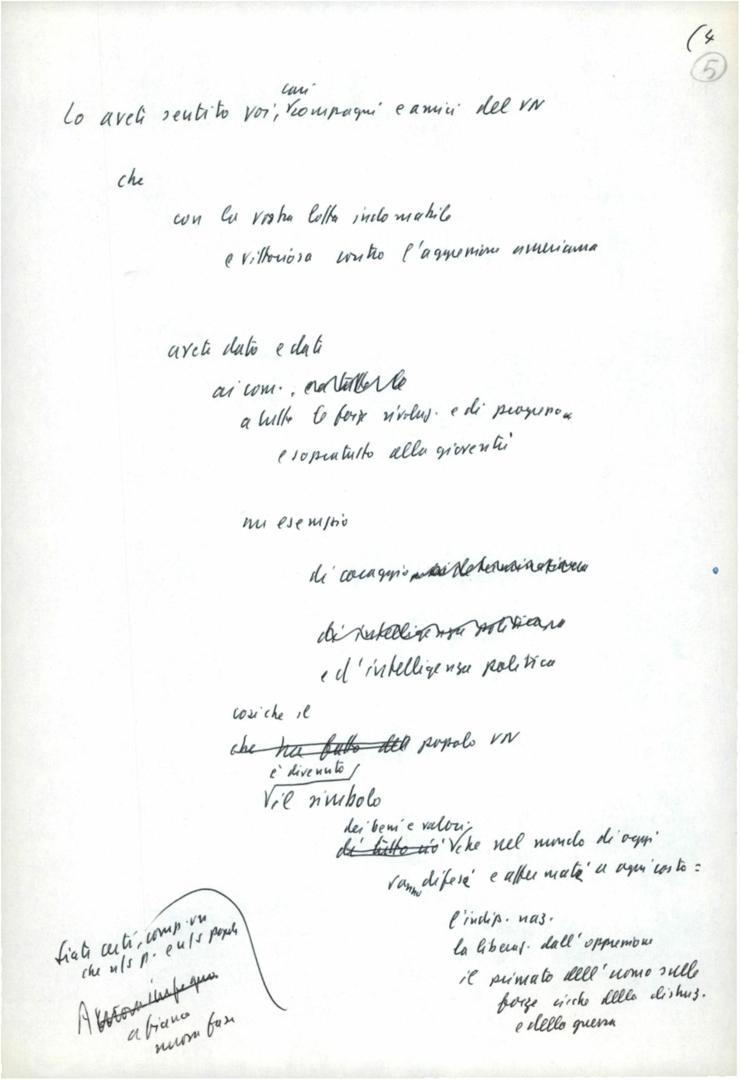 (4
5
cari
Lo avete sentito voi, compagni e amici del VN
che
con la vostra lotta indomabile
e vittoriosa contro l'aggressione americana
avete dato e date
ai com.,
a tutte le forze rivoluz. e di progresso
e sopratutto alla gioventù
un esempio
di coraggio
di intelligenza politica
e d'intelligenza politica
cosiche il
che ha fatto del popolo VN
è divenuto
il simbolo
dei beni e valori
di tutto ciò che nel mondo di oggi
vanno difesi e affermati a ogni costo:
l'indip. naz.
la liberaz. dall'oppressione
il primato dell'uomo sulle
forze cieche della distruz.
e della guerra
siate certi, comp. vn
che n/s p. e n/s popolo
a fianco
nuova fase